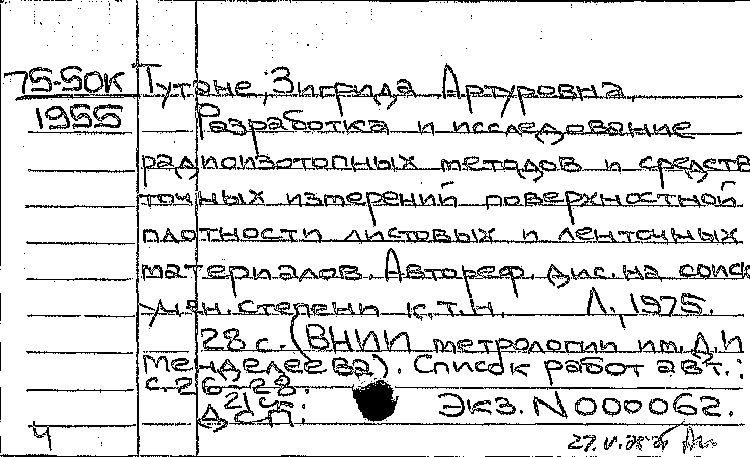 75-50К Тутане, Зигрида Артуровна.
1955 Разработка и исследование
радиоизотопных методов и средств
точных измерений поверхностной
плотности листовых и ленточных
материалов. Автореф. дис. на соиск.
учен. степени к.т.н. Л., 1975.
28 с. (ВНИИ метрологии им. Д. И
Менделеева). Список работ авт.:
с. 26-28.
ДСП: Экз. N 000062.
Ч 27.V.75